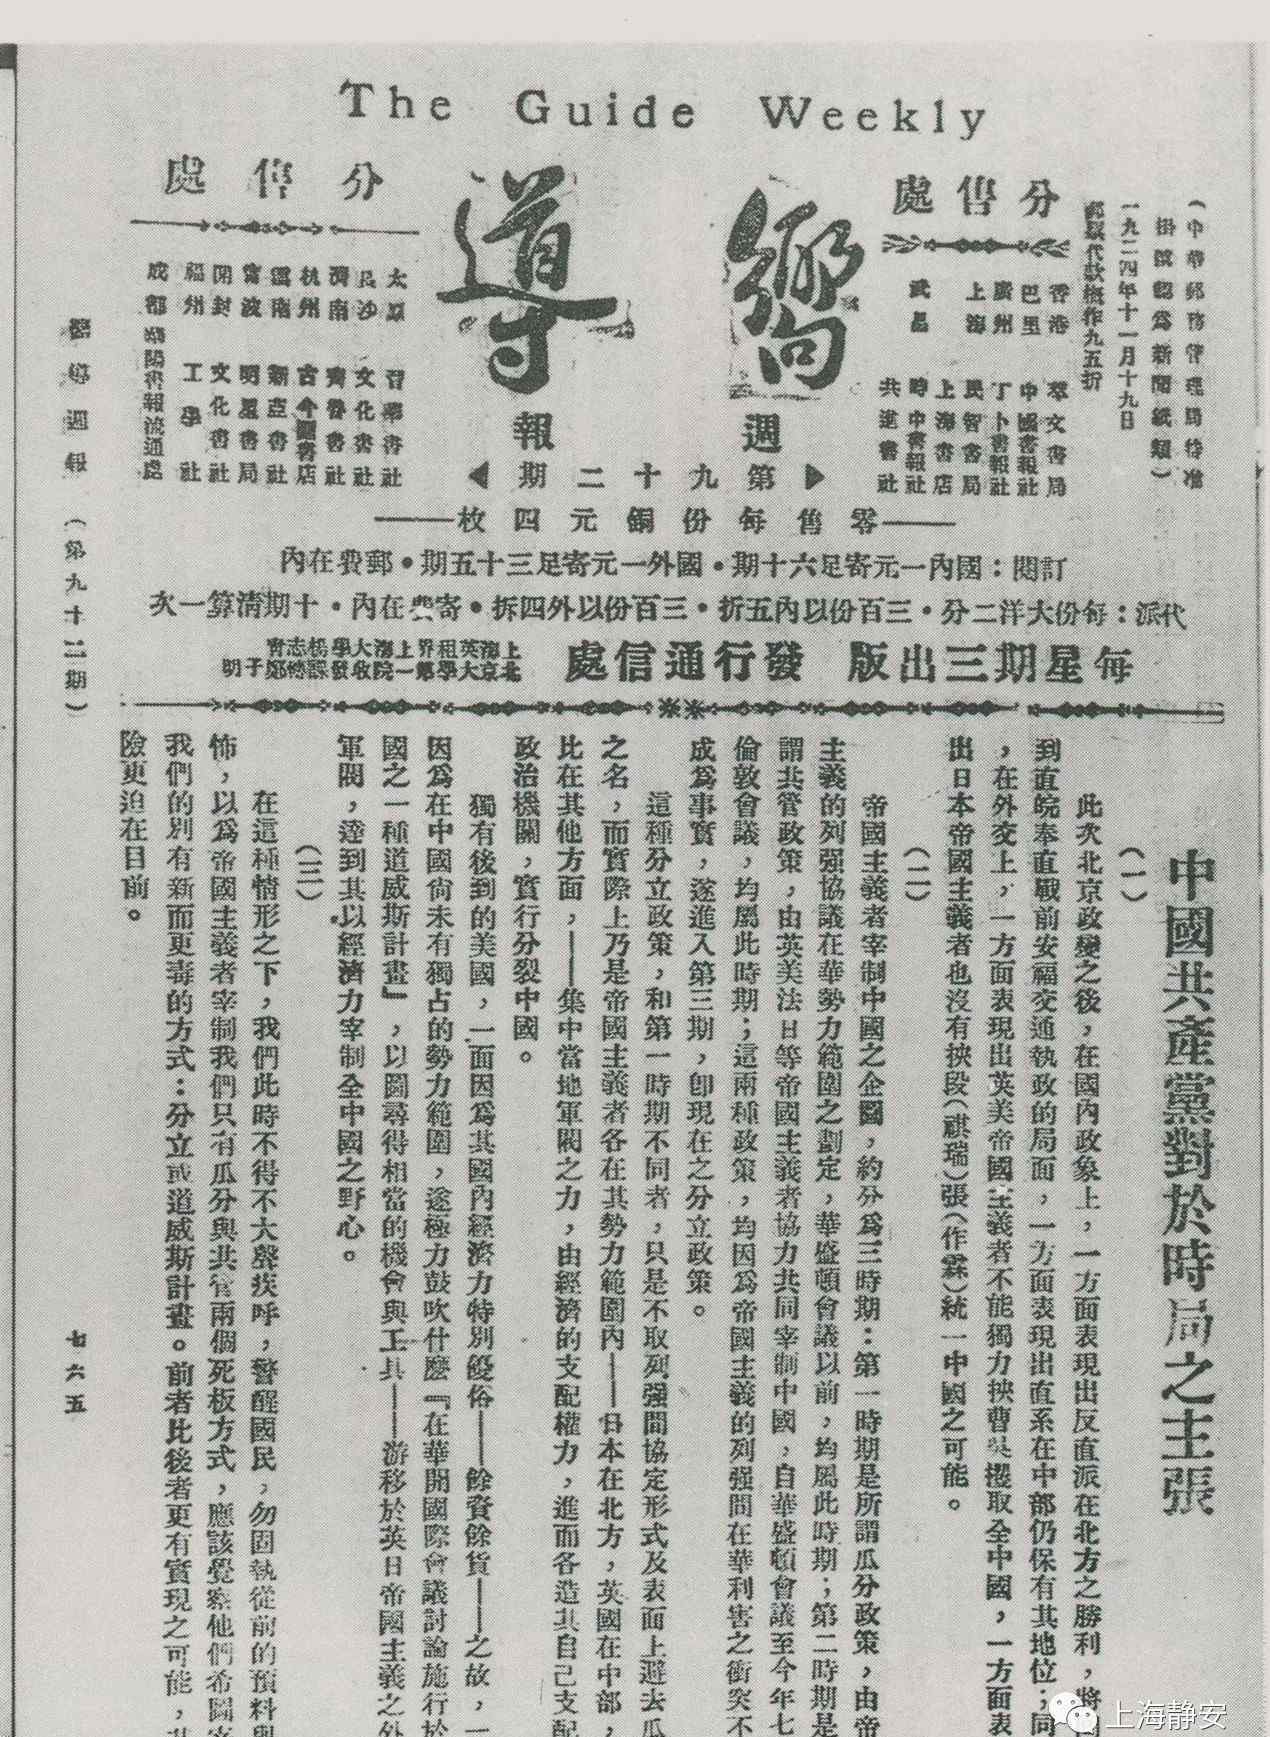 The Guide Weekly
（中華郵務管理局特准
掛號認為新聞紙類）
一九二四年十一月十九日
郵票代款概作九五折
分售處
香港 萃文書局
巴里 中國書報社
廣州 丁卜書報社
上海 民智書局
上海書店
武昌 時中書報社
共進書社
嚮導
週報
第九十二期
分售處
太原 晉華書社
長沙 文化書社
濟南 齊魯書社
杭州 古今圖書店
雲南 新亞書社
寧波 明星書局
開封 文化書社
福州 工學社
成都 華陽書報流通處
零售每份銅元四枚
訂閱：國內一元寄足六十期・國外一元寄足三十五期・郵費在內
代派：每份大洋二分・三百份以內五折・三百份以外四拆・寄費在內・十期清算一次
每星期三出版 發行通信處
上海英租界上海大學楊志
北京大學第一院收發課
中國共產黨對於時局之主張
（一）
此次北京政變之後，在國內政象上，一方面表現出反直派在北方之勝利，將
到直皖奉直戰前安福交通執政的局面，一方面表現出直系在中部仍保有其地位；同
，在外交上，一方面表現出英美帝國主義者不能獨力挾曹吳攫取全中國，一方面表
出日本帝國主義者也沒有挾段（祺瑞）張（作霖）統一中國之可能。
（二）
帝國主義者宰制中國之企圖，約分為三時期：第一時期是所謂瓜分政策，由帝
主義的列强協議在華勢力範圍之劃定，華盛頓會議以前，均屬此時期；第二時期是
謂共管政策，由英美法日等帝國主義者協力共同宰制中國，自華盛頓會議至今年七
倫敦會議，均屬此時期；這兩種政策，均因為帝國主義的列强間在華利害之衝突不
成為事實，遂進入第三期，卽現在之分立政策。
這種分立政策，和第一時期不同者，只是不取列强間協定形式及表面上避去瓜
之名，而實際上乃是帝國主義者各在其勢力範圍內——日本在北方，英國在中部，
比在其他方面，——集中當地軍閥之力，由經濟的支配權力，進而各造其自己支配
政治機關，實行分裂中國。
獨有後到的美國，一面因為其國內經濟力特別優裕——餘資餘貨——之故，一
因為在中國尙未有獨占的勢力範圍，遂極力鼓吹什麼『在華開國際會議討論施行於
國之一種道威斯計畫』，以圖尋得相當的機會與工具——游移於英日帝國主義之外
軍閥，達到其以經濟力宰制全中國之野心。
（三）
在這種情形之下，我們此時不得不大聲疾呼，警醒國民，勿固執從前的預料與
怖，以為帝國主義者宰制我們只有瓜分與共管兩個死板方式，應該覺察他們希圖宰
我們的別有新而更毒的方式：分立或道威斯計畫。前者比後者更有實現之可能，
險更迫在目前。
嚮導週報 （第九十二期）
七六五
上海静安